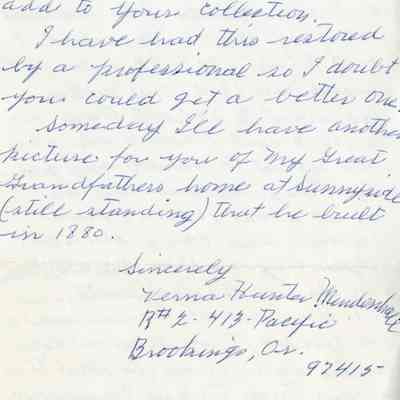 add to your collection.
I have had this restored
by a professional so I doubt
you could get a better one.
Someday I'll have another
picture for you of my Great
Grandfathers home at Sunnyside
(still standing) that he built
in 1880.
Sincerely
Verna Hunter Mendenhall
R#2 - 413 - Pacific
Brookings, Or.
97415